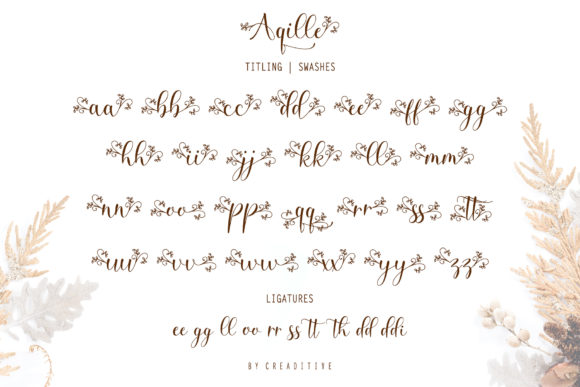 Aqille
TITLING | SWASHES
aa bb cc dd ee ff gg
hh ii jj kk ll mm
nn oo pp qq rr ss tt
uu vv ww xx yy zz
LIGATURES
ee gg ll oo rr ss tt th dd ddi
BY CREADITIVE